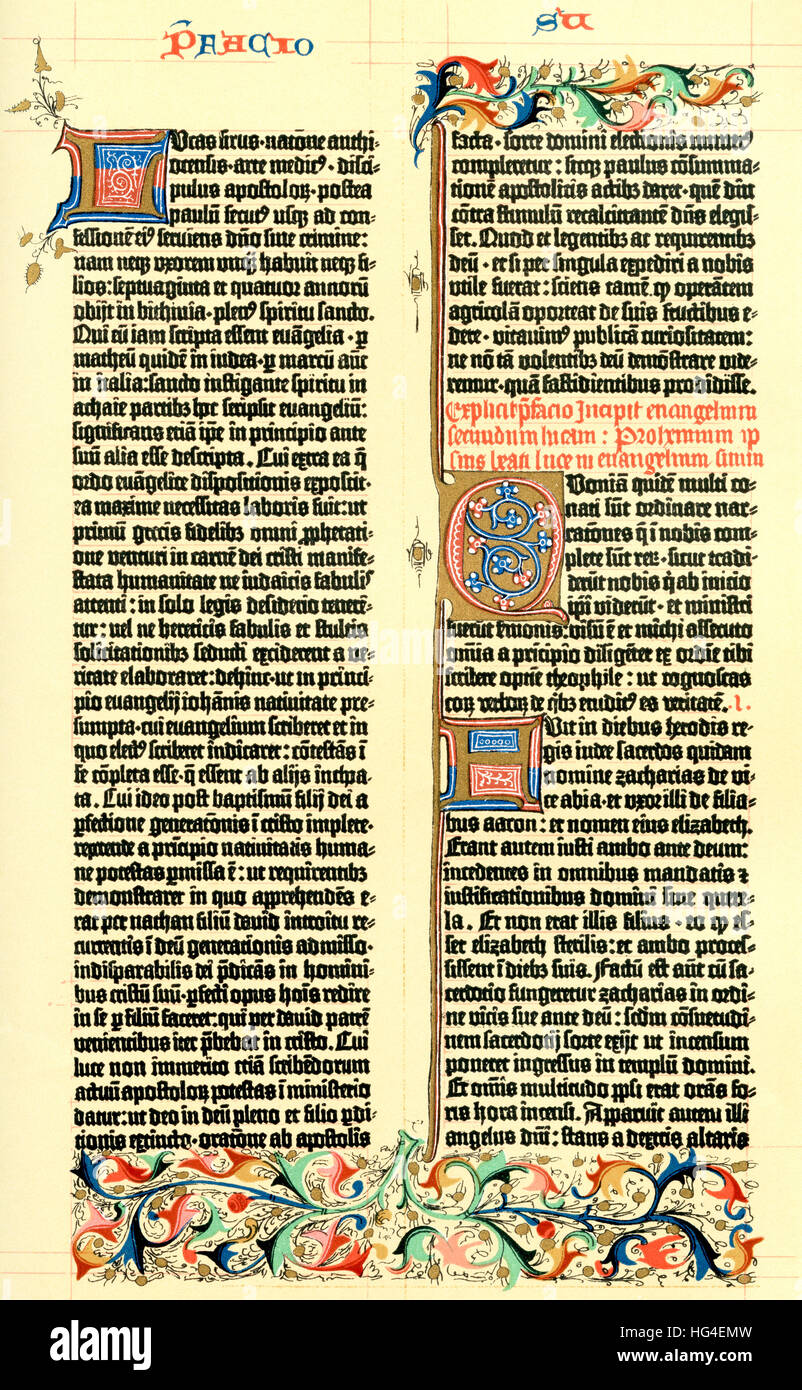 P̄FACIO
SU
Lucas sirus · natōne anthi-
ocensis · arte medicꝰ · disci-
pulus apostoloꝝ · postea
paulū secutꝰ usqꝫ ad con-
fessionē eiꝰ serviens dn̄o sine crimine:
nam neqꝫ uxorem unqꝫ habuit neqꝫ fi-
lios: septuaginta et quatuor annorū
obijt in bithinia · plenꝰ spiritu sancto.
Qui cū iam scripta essent euāgelia · ꝑ
matheū quidē in iudea · ꝑ marcū aūt
in italia: sancto instigante spiritu in
achaie partibꝫ hoc scripsit evangeliū:
significans etiā ip̄e in principio ante
suū alia esse descripta. Cui extra ea q̄
ordo euāgelice dispositionis exposcit ·
ea maxime necessitas laboris fuit: ut
primū grecis fidelibꝫ omni prophetati-
one venturi in carnē dei cristi manife-
stata humanitate ne iudaicis fabulis
attenti: in solo legis desiderio tenerē-
tur: vel ne hereticis fabulis et stultis
solicitationibꝫ seducti exciderent a ve-
ritate elaboraret: dehinc · ut in princi-
pio euangelij iohānis nativitate pre-
sumpta · cui evangelium scriberet et in
quo electꝰ scriberet indicaret: cōtestās ī
se cōpleta esse · q̄ essent ab alijs īchoa-
ta. Cui ideo post baptismū filij dei a
ꝑfectione generatōnis ī cristo implete ·
repetende a principio nativitatis huma-
ne potestas ꝑmissa ē: ut requirentibꝫ
demonstraret in quo apprehendēs e-
rat per nathan filiū david introitu re-
currentis ī deū generationis admisso ·
indisparabilis dei p̄dicās in homini-
bus cristū suū · ꝑfecti opus hoīs redire
in se ꝑ filiū faceret: qui per david patrē
venientibus iter p̄bebat in cristo. Cui
luce non immerito etiā scribēdorum
actuū apostoloꝝ potestas ī ministerio
datur: ut deo in deū pleno et filio ꝑdi-
tionis extincto · oratōne ab apostolis
facta · sorte domini electionis numerꝰ
compleretur: sicqꝫ paulus cōsumma-
tionē apostolicis actibꝫ daret · quē diu
cōtra stimulū recalcitrantē dn̄s elegis-
set. Quod et legentibꝫ ac requirentibꝫ
deū · et si per singula expediri a nobis
utile fuerat: sciens tamē ꝙ operātem
agricolā oporteat de suis fructibus e-
dere · vitavimꝰ publicā curiositatem:
ne nō tā volentibꝫ deū demōstrare vide-
remur · quā fastidientibus prodidisse.
Explicit p̄facio Incipit evangelium
secundum lucam: Prohemium ip
sius beati luce in evangelium suum
Quoniā quidē multi co-
nati sūt ordinare nar-
rationes q̄ ī nobis com-
plete sūt reꝝ · sicut tradi-
derūt nobis q̄ ab inicio
ip̄i viderūt · et ministri
fuerūt sermonis: visū ē et michi assecuto
omnia a pricipio diligēter ex ordine tibi
scribere optīe theophile: ut cognoscas
eoꝝ verboꝝ de q̄bꝫ eruditꝰ es veritatē. I.
Fuit in diebus herodis re-
gis iudee sacerdos quidam
nomine zacharias de vi-
ce abia · et uxor illi de filia-
bus aaron: et nomen eius elizabeth.
Erant autem iusti ambo ante deum:
incedentes in omnibus mandatis et
iustificationibus domini sine quere-
la. Et non erat illis filius · eo ꝙ es-
set elizabeth sterilis: et ambo proces-
sissent ī diebꝫ suis. Factū est aūt cū sa-
cerdotio fungeretur zacharias in ordi-
ne vicis sue ante deū: scdm cōsuetudi-
nem sacerdotij sorte exijt ut incensum
poneret ingressus in templū domini.
Et om̄is multitudo pp̄li erat orās fo-
ris hora incensi. Apparuit autem illi
angelus dn̄i: stans a dextris altaris
alamy
Image ID: HG4EMW
www.alamy.com